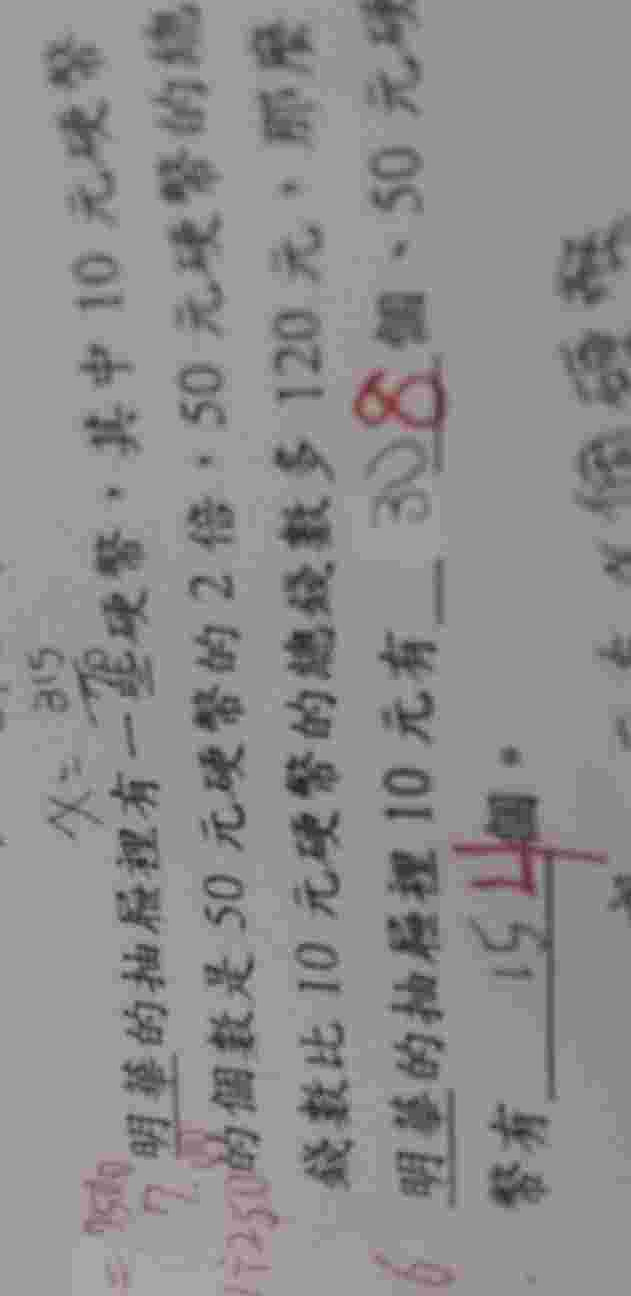 x = 315
明華的抽屜裡有一些硬幣,其中 10 元硬幣
的個數是 50 元硬幣的 2 倍,50 元硬幣的總
錢數比 10 元硬幣的總錢數多 120 元,那麼
明華的抽屜裡 10 元有 30 8 個、50 元硬
幣有 15 4 個。